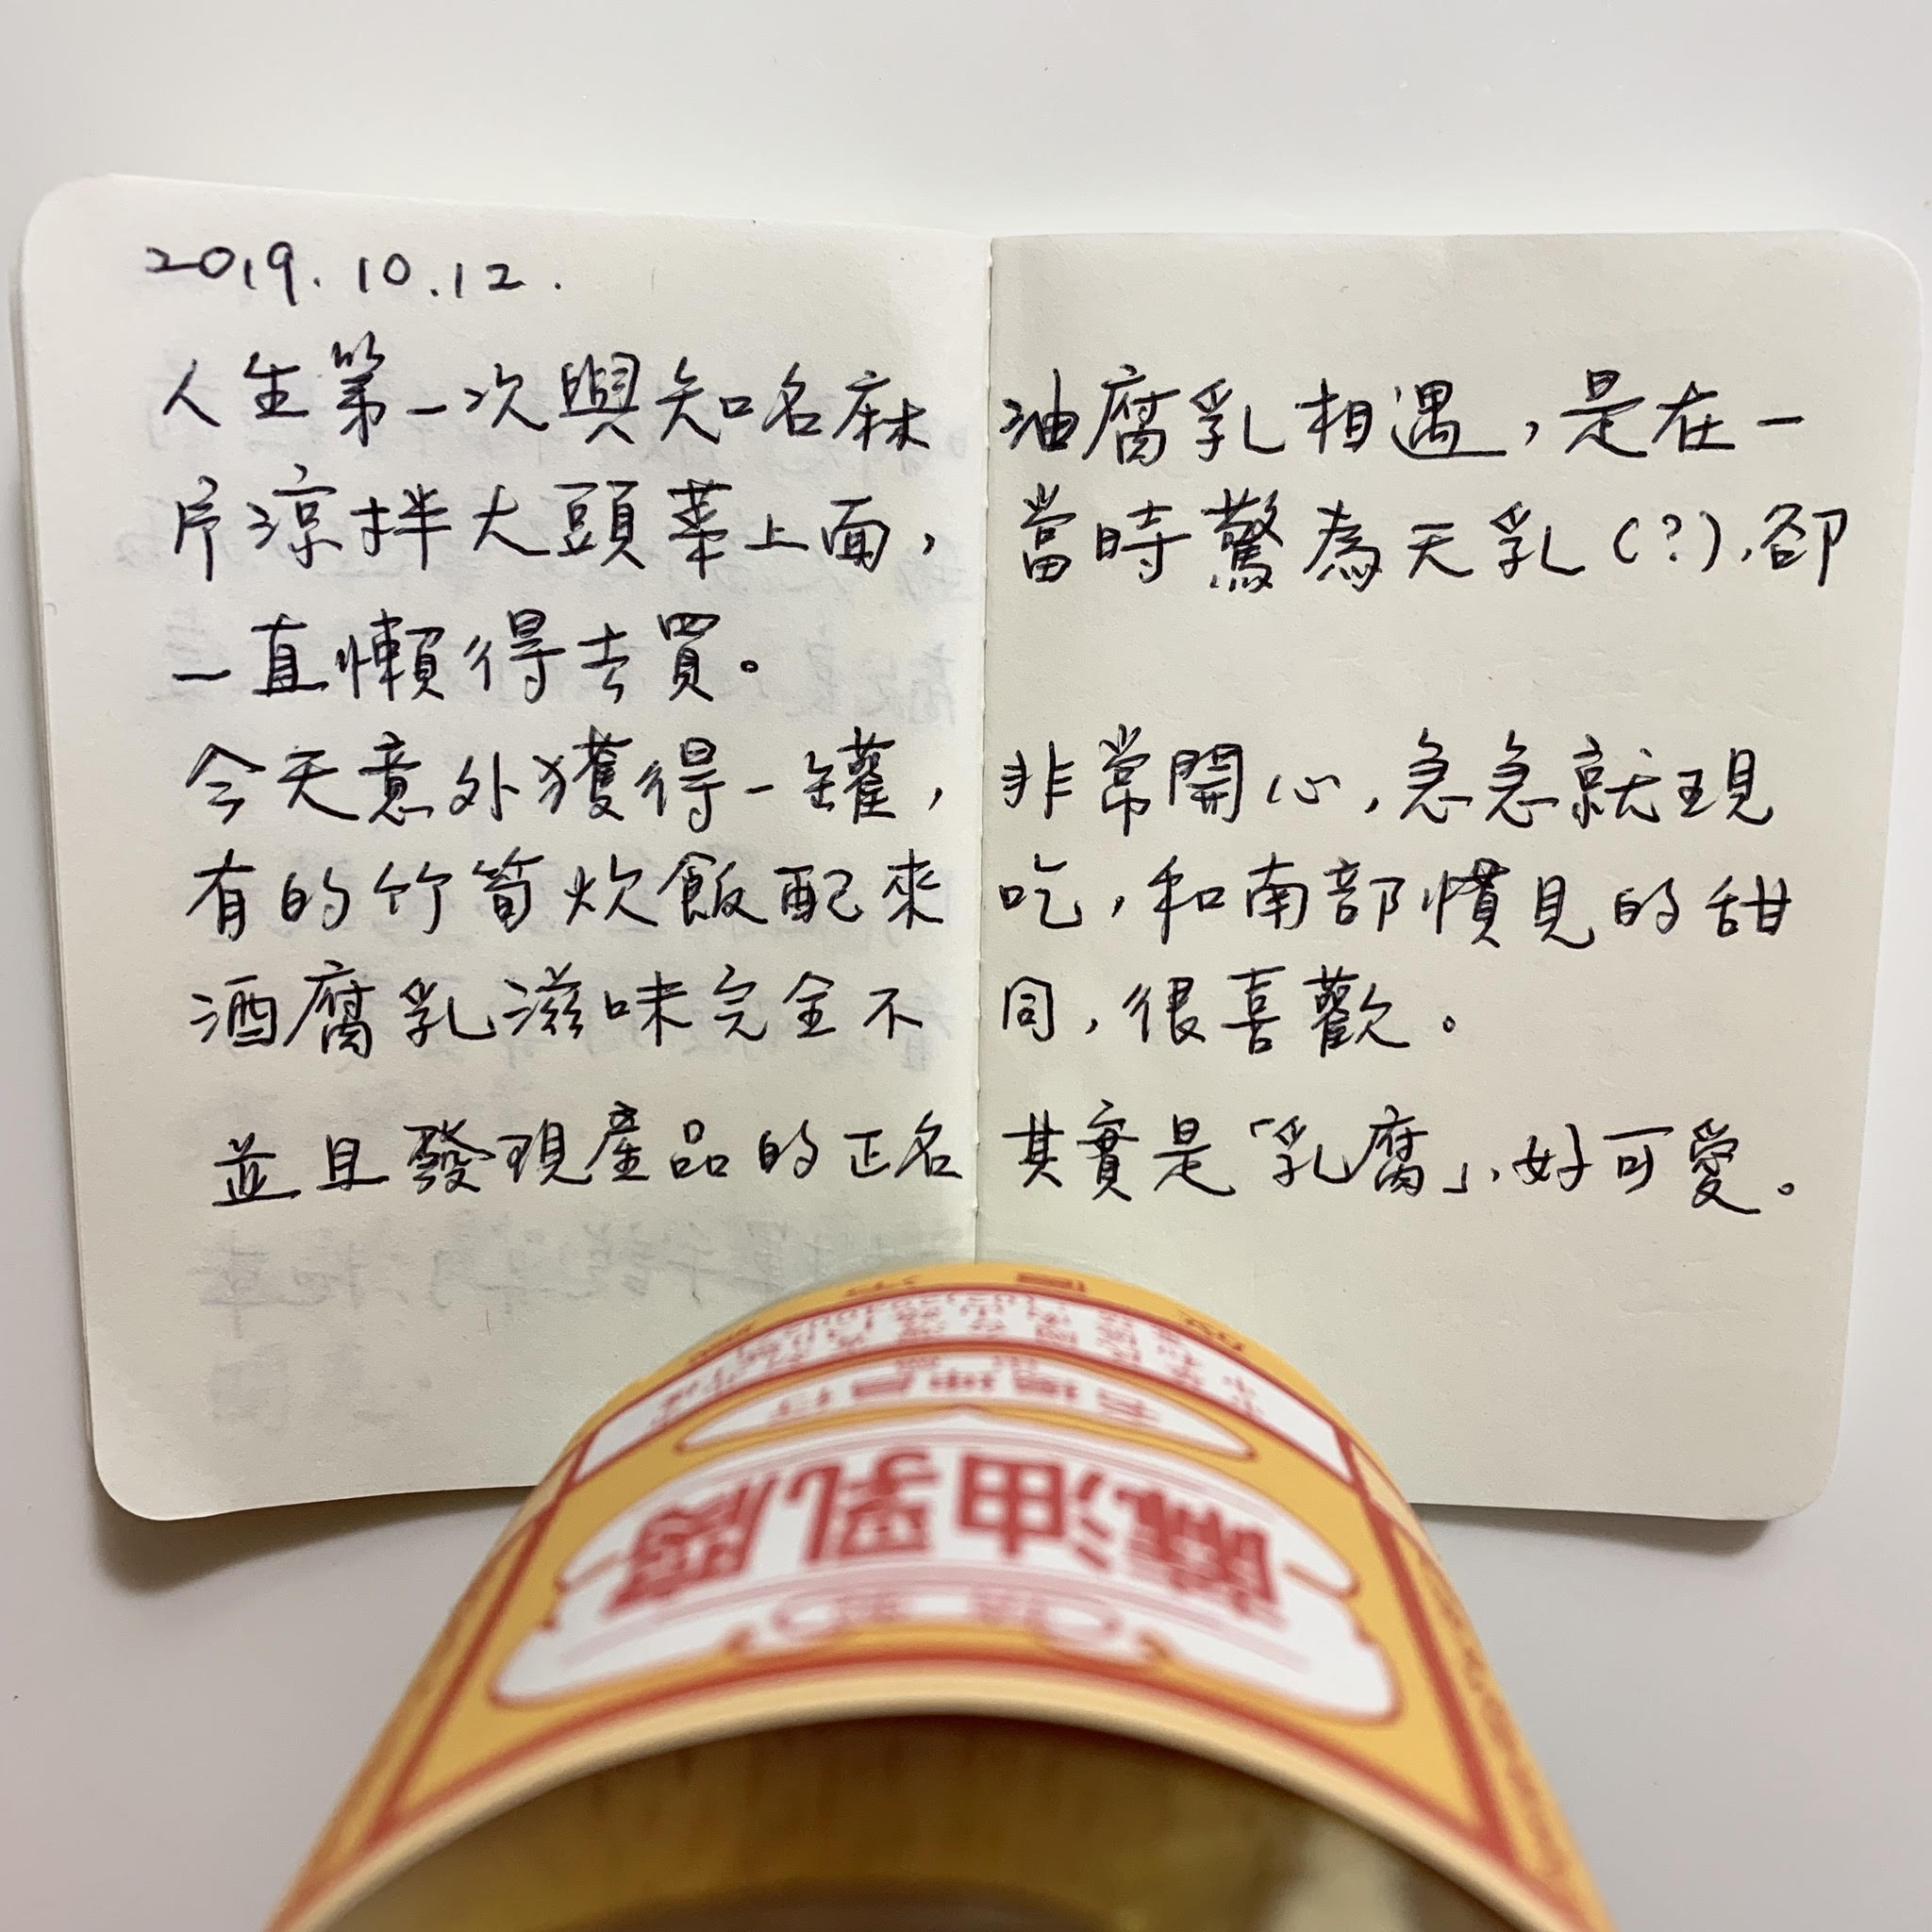 2019.10.12.
人生第一次與知名麻油腐乳相遇,是在一
片涼拌大頭菜上面,當時驚為天乳(?),卻
一直懶得去買。
今天意外獲得一罐,非常開心,急急就現
有的竹筍炊飯配來吃,和南部慣見的甜
酒腐乳滋味完全不同,很喜歡。
並且發現產品的正名其實是「乳腐」,好可愛。
麻油乳腐